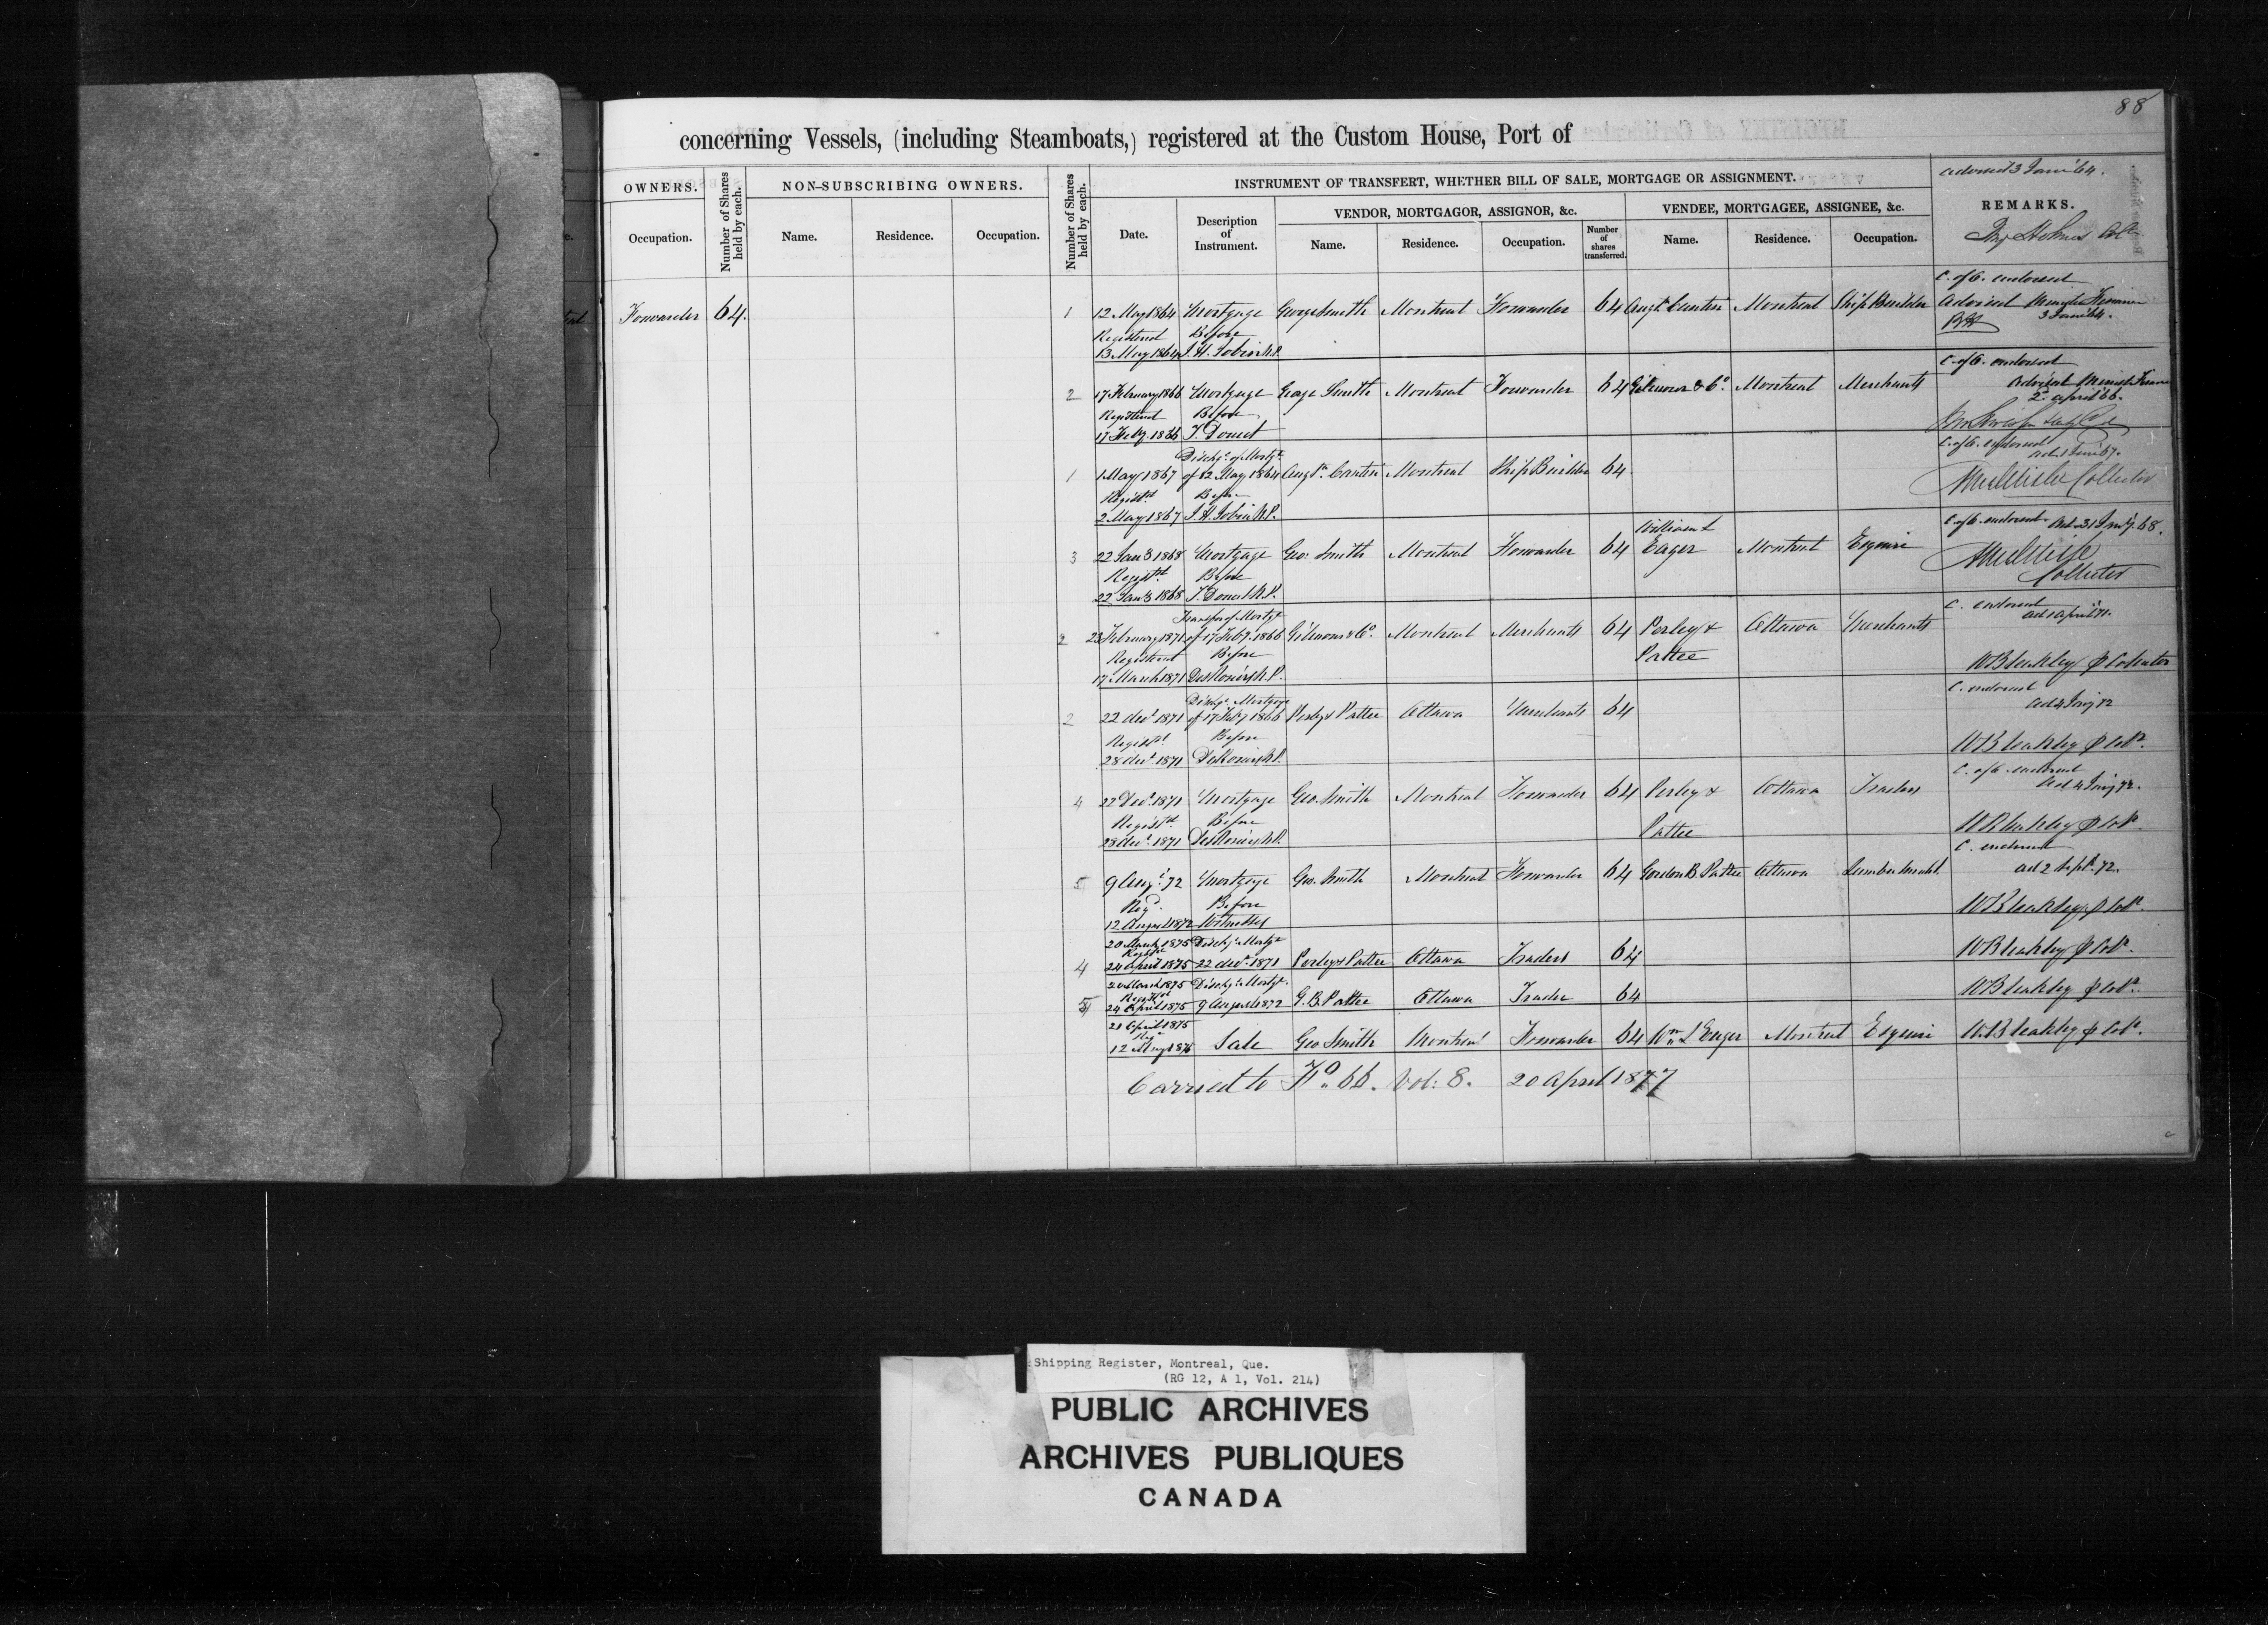 88
concerning Vessels, (including Steamboats,) registered at the Custom House, Port of
OWNERS.
Number of Shares held by each.
NON-SUBSCRIBING OWNERS.
Number of Shares held by each.
INSTRUMENT OF TRANSFERT, WHETHER BILL OF SALE, MORTGAGE OR ASSIGNMENT.
advised 3 June 64.
REMARKS.
Occupation.
Name.
Residence.
Occupation.
Date.
Description of Instrument.
VENDOR, MORTGAGOR, ASSIGNOR, &c.
VENDEE, MORTGAGEE, ASSIGNEE, &c.
Name.
Residence.
Occupation.
Number of shares transferred.
Name.
Residence.
Occupation.
C. of O. endorsed
Forwarder 64. 1 12 May 1864 Mortgage George Smith Montreal Forwarder 64 Augt. Cantin Montreal Ship Builder advised
Registered Before 3 June 64.
13 May 1864 J. H. Jobin N.P.
C. of O. endorsed
2 17 February 1866 Mortgage George Smith Montreal Forwarder 64 Gilmour & Co. Montreal Merchants advised
Registered Before 2 april 66.
17 Feby. 1866 J. Doucet
Dischge. of Mortge. C. of O. endorsed
1 1 May 1867 of 12 May 1864 Augtn. Cantin Montreal Ship Builder 64
Registd. Before Collector
2 May 1867 J. H. Jobin N.P.
William L C. of O. endorsed
3 22 Jany 1868 Mortgage Geo. Smith Montreal Forwarder 64 Eager Montreal Esquire
Registd. Before Collector
22 Jany 1868 J. Doucet N.P.
Transfer of Mortge C. endorsed
2 23 February 1871 of 17 Feby. 1866 Gilmour & Co. Montreal Merchants 64 Perley & Ottawa Merchants
Registered Before Pattee
17 March 1871 DesRosiers N.P. W Bleakley p Collector
Dischge. Mortgage C. endorsed
2 22 decr 1871 of 17 Feby 1866 Perley & Pattee Ottawa Merchants 64
Registd. Before
28 decr. 1871 DesRosiers N.P. W Bleakley p Collr.
C. of O. endorsed
4 22 Decr. 1871 Mortgage Geo. Smith Montreal Forwarder 64 Perley & Ottawa Traders
Registd. Before Pattee
28 decr. 1871 DesRosiers N.P. W Bleakley p Collr.
C. endorsed
5 9 Augt. 72 Mortgage Geo. Smith Montreal Forwarder 64 Gordon B. Pattee Ottawa Lumber Mercht. ad 2 Sept. 72.
Regd. Before
12 August 1872 Witnesses W Bleakley p Collr.
20 March 1875 Dischge Mortge
Registd
4 24 april 1875 22 decr. 1871 Perley & Pattee Ottawa Traders 64 W Bleakley p Collr.
20 March 1875 Dischge Mortge.
Registd
5 24 April 1875 9 August 1872 G. B. Pattee Ottawa Trader 64 W Bleakley p Collr.
21 April 1875
Reg
12 May 1876 Sale Geo Smith Montreal Forwarder 64 Wm. L Eager Montreal Esquire W. Bleakley p Collr.
Carried to Fo. 66. Vol: 8. 20 April 1877
Shipping Register, Montreal, Que.
(RG 12, A 1, Vol. 214)
PUBLIC ARCHIVES
ARCHIVES PUBLIQUES
CANADA